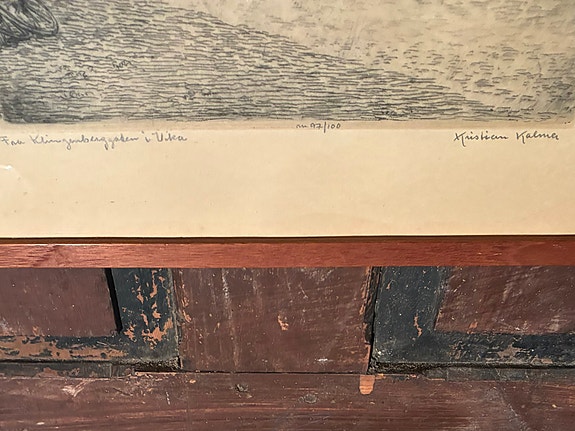 Fra Klingenberggaten i Vika
nr. 97/100
Kristian Kalma